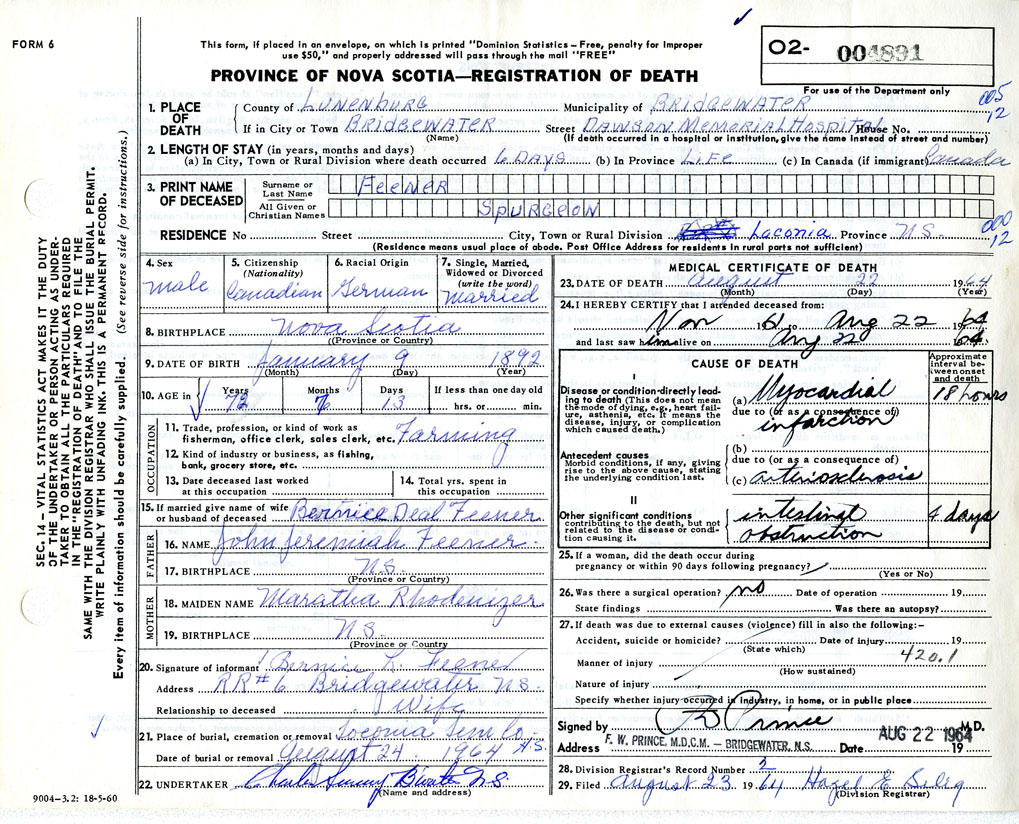 FORM 6
This form, if placed in an envelope, on which is printed "Dominion Statistics – Free, penalty for improper
use $50," and properly addressed will pass through the mail "FREE"
PROVINCE OF NOVA SCOTIA—REGISTRATION OF DEATH
O2- 004891
For use of the Department only
005
12
1. PLACE OF DEATH
County of Lunenburg Municipality of Bridgewater
If in City or Town Bridgewater Street Dawson Memorial Hospital House No.
(Name) (If death occurred in a hospital or institution, give the name instead of street and number)
2. LENGTH OF STAY (in years, months and days)
(a) In City, Town or Rural Division where death occurred 6 Days (b) In Province Life (c) In Canada (if immigrant) Canada
3. PRINT NAME OF DECEASED
Surname or Last Name Feener
All Given or Christian Names Spurgeon
RESIDENCE No Street City, Town or Rural Division Laconia Province N.S.
000
12
(Residence means usual place of abode. Post Office Address for residents in rural parts not sufficient)
4. Sex
male
5. Citizenship (Nationality)
Canadian
6. Racial Origin
German
7. Single, Married, Widowed or Divorced (write the word)
Married
8. BIRTHPLACE Nova Scotia
(Province or Country)
9. DATE OF BIRTH January 9 1892
(Month) (Day) (Year)
10. AGE in
Years 72
Months 7
Days 13
If less than one day old
hrs. or min.
OCCUPATION
11. Trade, profession, or kind of work as
fisherman, office clerk, sales clerk, etc. Farming
12. Kind of industry or business, as fishing,
bank, grocery store, etc.
13. Date deceased last worked
at this occupation
14. Total yrs. spent in
this occupation
15. If married give name of wife
or husband of deceased Bernice Deal Feener
FATHER
16. NAME John Jeremiah Feener
17. BIRTHPLACE N.S.
(Province or Country)
MOTHER
18. MAIDEN NAME Maratha Rhodenizer
19. BIRTHPLACE N.S.
(Province or Country)
20. Signature of informant Bernice L. Feener
Address RR#6 Bridgewater NS
Relationship to deceased Wife
21. Place of burial, cremation or removal
Date of burial or removal August 24 1964 N.S.
22. UNDERTAKER
(Name and address)
MEDICAL CERTIFICATE OF DEATH
23. DATE OF DEATH August 22 1964
(Month) (Day) (Year)
24. I HEREBY CERTIFY that I attended deceased from:
Nov 1961 to Aug 22 1964
and last saw him alive on Aug 22 1964
CAUSE OF DEATH
Approximate interval between onset and death
I
Disease or condition directly leading to death (This does not mean the mode of dying, e.g., heart failure, asthenia, etc. It means the disease, injury, or complication which caused death.)
(a) Myocardial 18 hours
due to (or as a consequence of)
infarction
Antecedent causes
Morbid conditions, if any, giving rise to the above cause, stating the underlying condition last.
(b)
due to (or as a consequence of)
(c) arteriosclerosis
II
Other significant conditions
contributing to the death, but not related to the disease or condition causing it.
intestinal 4 days
obstruction
25. If a woman, did the death occur during
pregnancy or within 90 days following pregnancy?
(Yes or No)
26. Was there a surgical operation? no Date of operation 19
State findings Was there an autopsy?
27. If death was due to external causes (violence) fill in also the following:–
Accident, suicide or homicide? Date of injury 19
(State which)
420.1
Manner of injury
(How sustained)
Nature of injury
Specify whether injury occurred in industry, in home, or in public place
Signed by Prince M.D.
Address F. W. PRINCE, M.D.C.M. – BRIDGEWATER, N.S. Date AUG 22 1964 19
28. Division Registrar's Record Number
29. Filed August 23 1964 Hazel E
(Division Registrar)
SEC. 14 – VITAL STATISTICS ACT MAKES IT THE DUTY
OF THE UNDERTAKER OR PERSON ACTING AS UNDER-
TAKER TO OBTAIN ALL THE PARTICULARS REQUIRED
IN THE "REGISTRATION OF DEATH" AND TO FILE THE
SAME WITH THE DIVISION REGISTRAR WHO SHALL ISSUE THE BURIAL PERMIT.
WRITE PLAINLY WITH UNFADING INK. THIS IS A PERMANENT RECORD.
Every item of information should be carefully supplied. (See reverse side for instructions.)
9004-3.2: 18-5-60